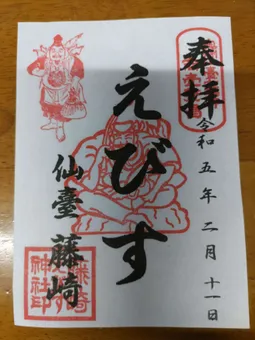 奉拝
令和五年二月十一日
えびす
仙臺藤崎